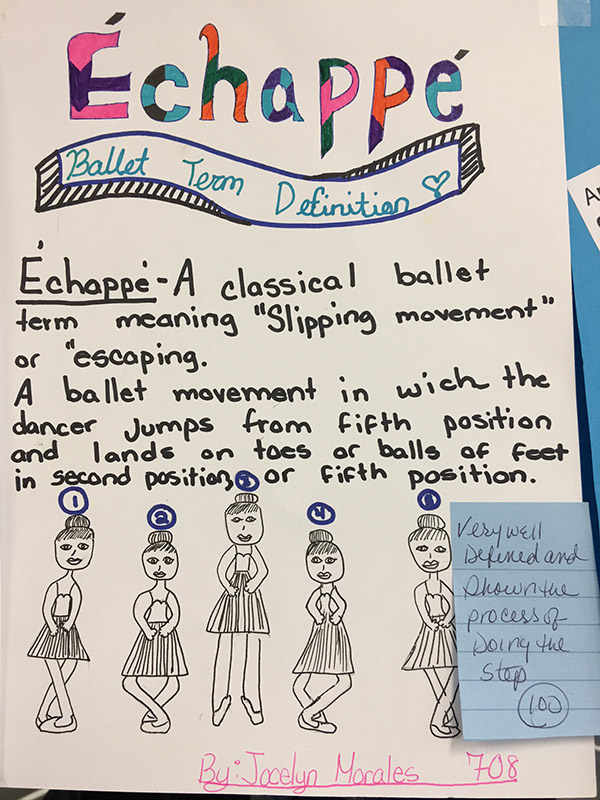 Échappé
Ballet Term Definition
Échappé - A classical ballet
term meaning "Slipping movement"
or "escaping.
A ballet movement in wich the
dancer jumps from fifth position
and lands on toes or balls of feet
in second position, or fifth position.
1 2 3 4 5
Very well
Defined and
shown the
process of
Doing the
step
100
By: Jocelyn Morales 708
A